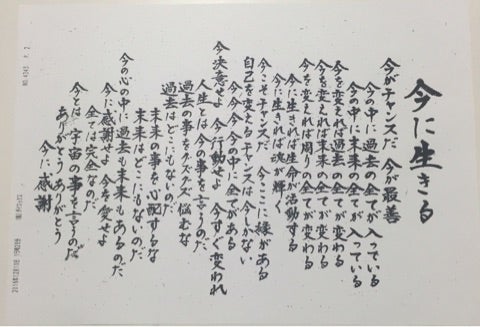 今に生きる
今がチャンスだ 今が最善
今の中に過去の全てが入っている
今の中に未来の全てが入っている
今を変えれば過去の全てが変わる
今を変えれば未来の全てが変わる
今を変えれば周りの全てが変わる
今に生きれば生命が活動する
今に生きれば魂が輝く
今こそチャンスだ 今ここに縁がある
自己を変えるチャンスは今しかない
今 今 今 今の中に全てがある
今決意せよ 今行動せよ 今すぐ変われ
人生とは今の事を言うのだ
過去の事をクズクズ悩むな
過去はどこにもないのだ
未来の事を心配するな
未来はどこにもないのだ
今の心の中に過去も未来もあるのだ
今に感謝せよ 今を愛せよ
全ては完全なのだ
今とは 宇宙の事を言うのだ
ありがとう ありがとう
今に感謝
NO.4343 P. 2